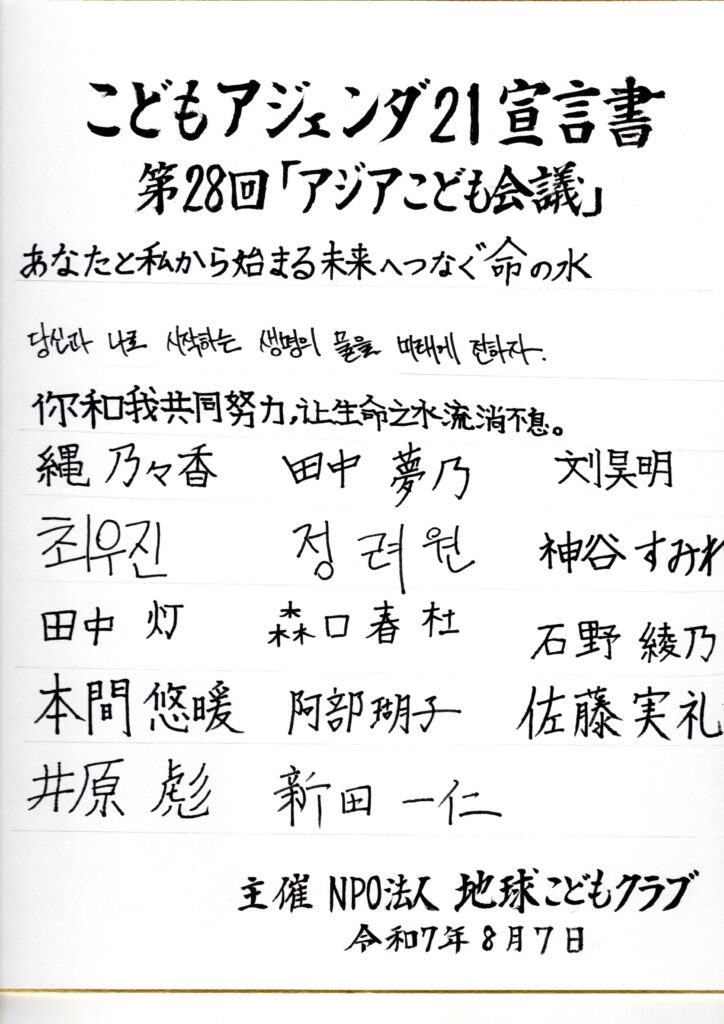 こどもアジェンダ21宣言書
第28回「アジアこども会議」
あなたと私から始まる未来へつなぐ命の水
당신과 나로 시작하는 생명의 물을 미래에 전하자.
你和我共同努力,让生命之水流淌不息。
縄 乃々香 田中 夢乃 刘昊明
최우진 정려원 神谷 すみれ
田中 灯 森口 春杜 石野 綾乃
本間 悠暖 阿部 瑚子 佐藤 実礼
井原 彪 新田 一仁
主催 NPO法人 地球こどもクラブ
令和7年8月7日